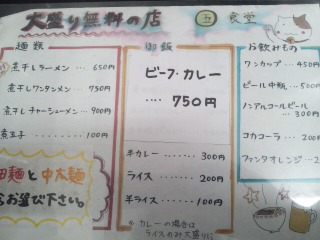 大盛り無料の店 五 食堂
麺類
煮干しラーメン ・・・ 650円
煮干しワンタンメン ・・・ 750円
煮干しチャーシューメン ・・・ 900円
煮玉子 ・・・・・・ 100円
細麺と中太麺
お選び下さい。
御飯
ビーフ・カレー
・・・・ 750円
半カレー ・・・・・・ 300円
ライス ・・・・・・ 200円
半ライス ・・・・・・ 100円
※カレーの場合は
ライスのみ大盛りに
お飲みもの
ワンカップ ・・・ 450円
ビール中瓶 ・・・ 500円
ノンアルコールビール
・・・・ 300円
コカコーラ ・・・ 200円
ファンタオレンジ ・・